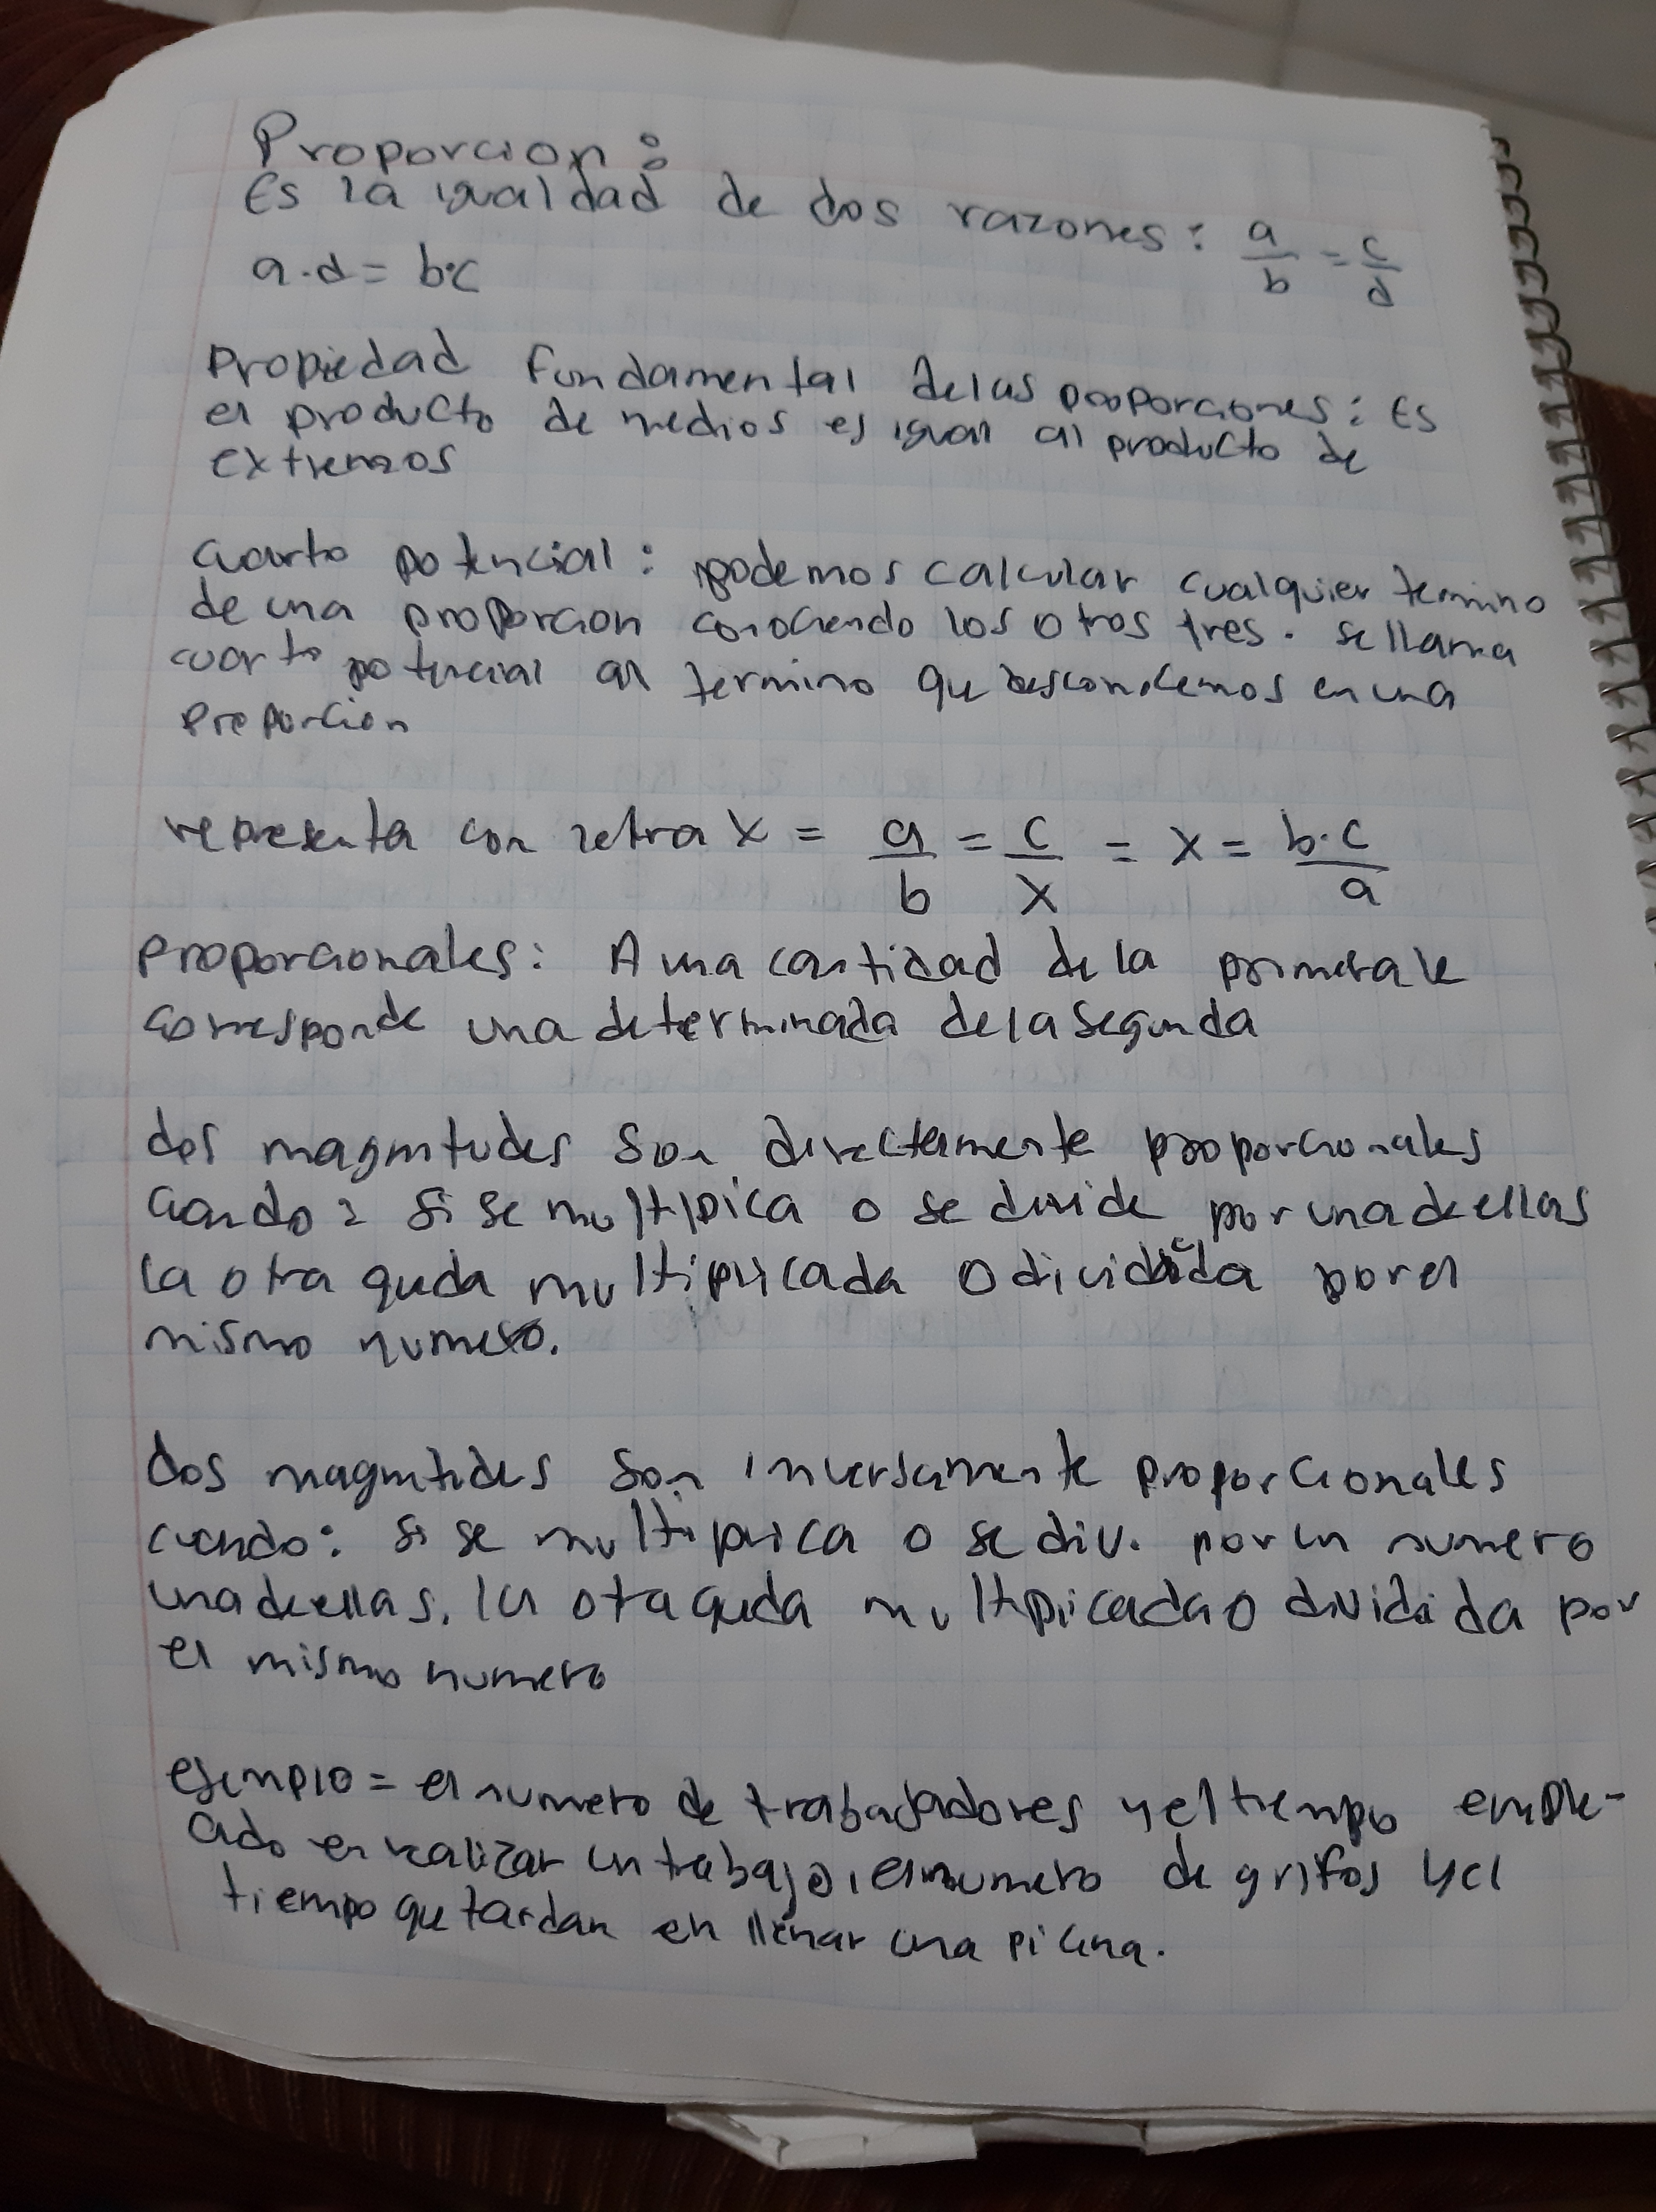 Proporcion:
Es la igualdad de dos razones: a/b = c/d
a·d = b·c
Propiedad fundamental de las proporciones: Es
el producto de medios es igual al producto de
extremos
cuarto potencial: podemos calcular cualquier termino
de una proporcion conociendo los otros tres. se llama
cuarto potencial al termino que desconocemos en una
proporcion
representa con letra x = a/b = c/x = x = b·c/a
proporcionales: A una cantidad de la primera le
corresponde una determinada de la segunda
dos magnitudes son directamente proporcionales
cuando: si se multiplica o se divide por una de ellas
la otra queda multiplicada o dividida por el
mismo numero.
dos magnitudes son inversamente proporcionales
cuando: si se multiplica o se div. por un numero
una de ellas, la otra queda multiplicada o dividida por
el mismo numero
ejemplo = el numero de trabajadores y el tiempo emple-
ado en realizar un trabajo, el numero de grifos y el
tiempo que tardan en llenar una picina.